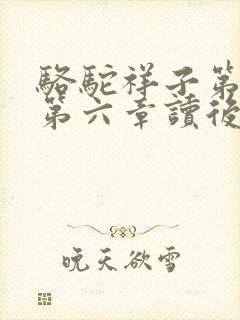 駱駝祥子第
第六章讀後
晚天欲雪